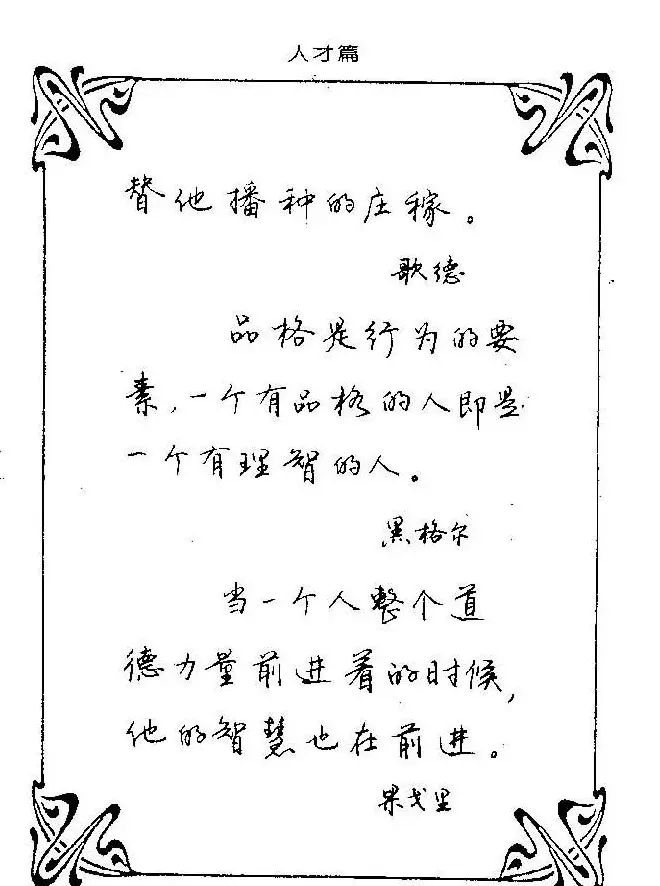 人才篇
替他播种的庄稼。
歌德
品格是行为的要
素,一个有品格的人即是
一个有理智的人。
黑格尔
当一个人整个道
德力量前进着的时候,
他的智慧也在前进。
果戈里